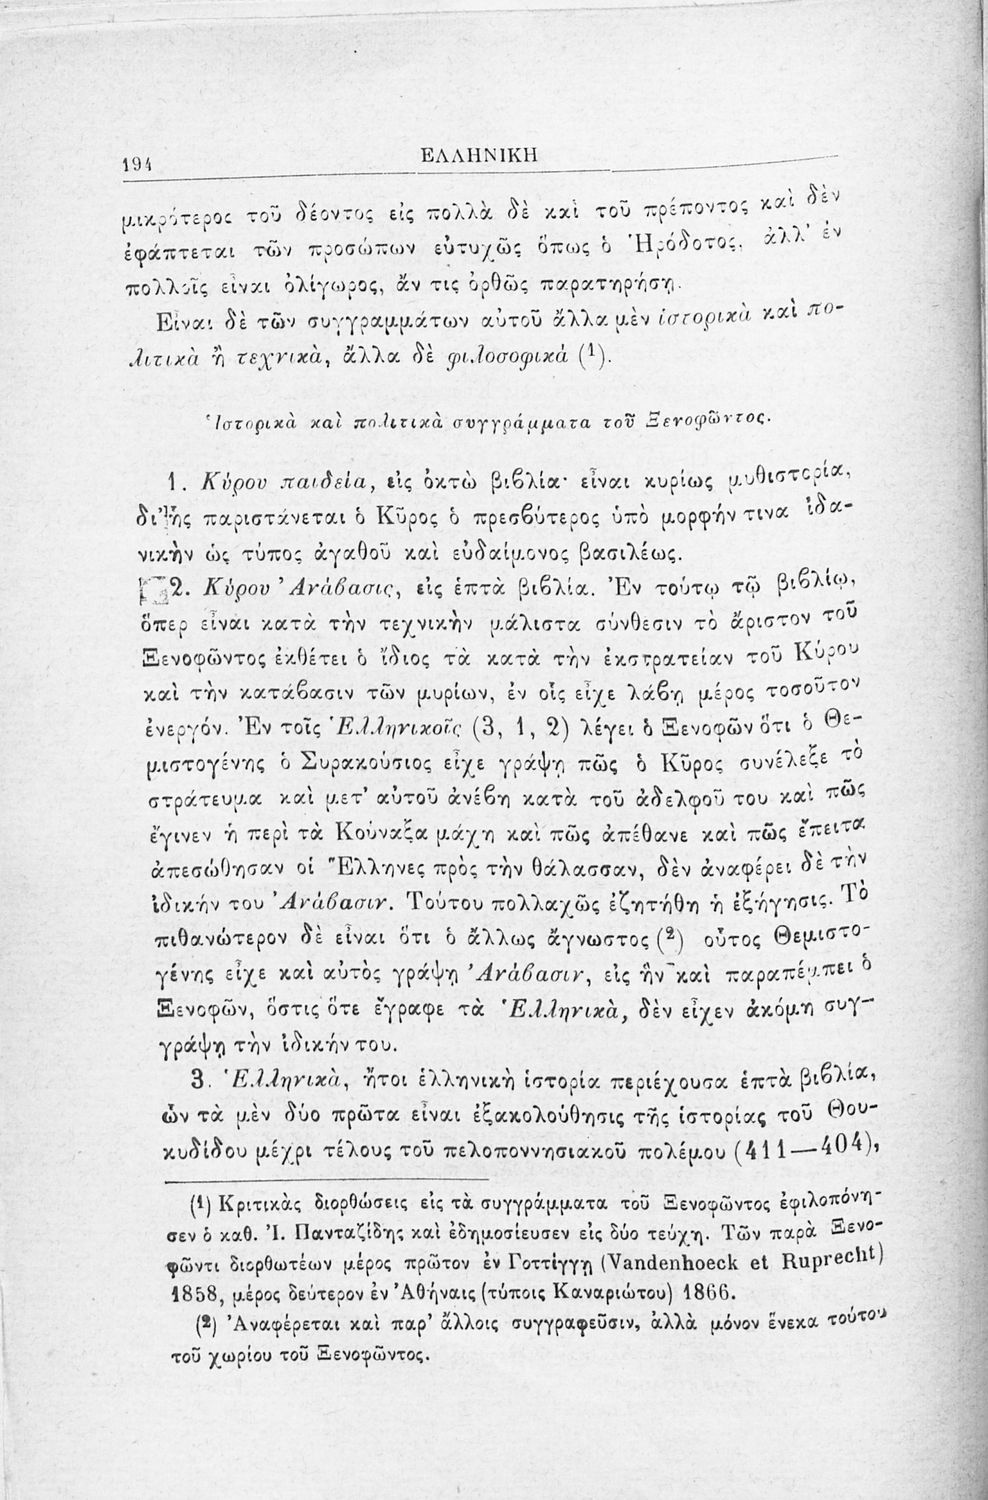 194 ΕΛΛΗΝΙΚΗ
μικρότερος τοῦ δέοντος εἰς πολλὰ δὲ καὶ τοῦ πρέποντος καὶ δὲν
ἐφάπτεται τῶν προσώπων εὐτυχῶς ὅπως ὁ Ἡρόδοτος, ἀλλ' ἐν
πολλοῖς εἶναι ὀλίγωρος, ἄν τις ὀρθῶς παρατηρήσῃ.
Εἶναι δὲ τῶν συγγραμμάτων αὐτοῦ ἄλλα μὲν ἱστορικὰ καὶ πο-
λιτικὰ ἢ τεχνικὰ, ἄλλα δὲ φιλοσοφικά (1).
Ἱστορικὰ καὶ πολιτικὰ συγγράμματα τοῦ Ξενοφῶντος.
1. Κύρου παιδεία, εἰς ὀκτὼ βιβλία· εἶναι κυρίως μυθιστορία,
δι' ἧς παριστάνεται ὁ Κῦρος ὁ πρεσβύτερος ὑπὸ μορφήν τινα ἰδα-
νικὴν ὡς τύπος ἀγαθοῦ καὶ εὐδαίμονος βασιλέως.
2. Κύρου Ἀνάβασις, εἰς ἑπτὰ βιβλία. Ἐν τούτῳ τῷ βιβλίῳ,
ὅπερ εἶναι κατὰ τὴν τεχνικὴν μάλιστα σύνθεσιν τὸ ἄριστον τοῦ
Ξενοφῶντος ἐκθέτει ὁ ἴδιος τὰ κατὰ τὴν ἐκστρατείαν τοῦ Κύρου
καὶ τὴν κατάβασιν τῶν μυρίων, ἐν οἷς εἶχε λάβῃ μέρος τοσοῦτον
ἐνεργόν. Ἐν τοῖς Ἑλληνικοῖς (3, 1, 2) λέγει ὁ Ξενοφῶν ὅτι ὁ Θε-
μιστογένης ὁ Συρακούσιος εἶχε γράψῃ πῶς ὁ Κῦρος συνέλεξε τὸ
στράτευμα καὶ μετ' αὐτοῦ ἀνέβη κατὰ τοῦ ἀδελφοῦ του καὶ πῶς
ἔγινεν ἡ περὶ τὰ Κούναξα μάχη καὶ πῶς ἀπέθανε καὶ πῶς ἔπειτα
ἀπεσώθησαν οἱ Ἕλληνες πρὸς τὴν θάλασσαν, δὲν ἀναφέρει δὲ τὴν
ἰδικήν του Ἀνάβασιν. Τούτου πολλαχῶς ἐζητήθη ἡ ἐξήγησις. Τὸ
πιθανώτερον δὲ εἶναι ὅτι ὁ ἄλλως ἄγνωστος (2) οὗτος Θεμιστο-
γένης εἶχε καὶ αὐτὸς γράψῃ Ἀνάβασιν, εἰς ἣν καὶ παραπέμπει ὁ
Ξενοφῶν, ὅστις ὅτε ἔγραφε τὰ Ἑλληνικὰ, δὲν εἶχεν ἀκόμη συγ-
γράψῃ τὴν ἰδικήν του.
3. Ἑλληνικὰ, ἤτοι ἑλληνικὴ ἱστορία περιέχουσα ἑπτὰ βιβλία,
ὧν τὰ μὲν δύο πρῶτα εἶναι ἐξακολούθησις τῆς ἱστορίας τοῦ Θου-
κυδίδου μέχρι τέλους τοῦ πελοποννησιακοῦ πολέμου (411—404),
(1) Κριτικὰς διορθώσεις εἰς τὰ συγγράμματα τοῦ Ξενοφῶντος ἐφιλοπόνη-
σεν ὁ καθ. Ἰ. Πανταζίδης καὶ ἐδημοσίευσεν εἰς δύο τεύχη. Τῶν παρὰ Ξενο-
φῶντι διορθωτέων μέρος πρῶτον ἐν Γοττίγγῃ (Vandenhoeck et Ruprecht)
1858, μέρος δεύτερον ἐν Ἀθήναις (τύποις Καναριώτου) 1866.
(2) Ἀναφέρεται καὶ παρ' ἄλλοις συγγραφεῦσιν, ἀλλὰ μόνον ἕνεκα τούτου
τοῦ χωρίου τοῦ Ξενοφῶντος.